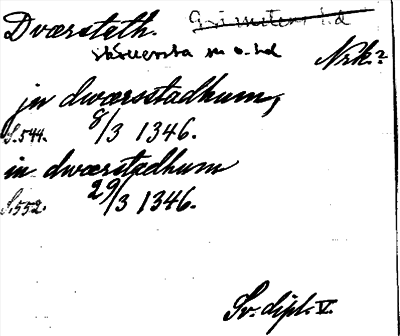 Dværsteth.
skånerska m o. hd
Nrk.?
jn dwærsstadhum,
S. 544. 8/3 1346.
in dwærstadhum
S. 552. 29/3 1346.
Sv. dipl. V.